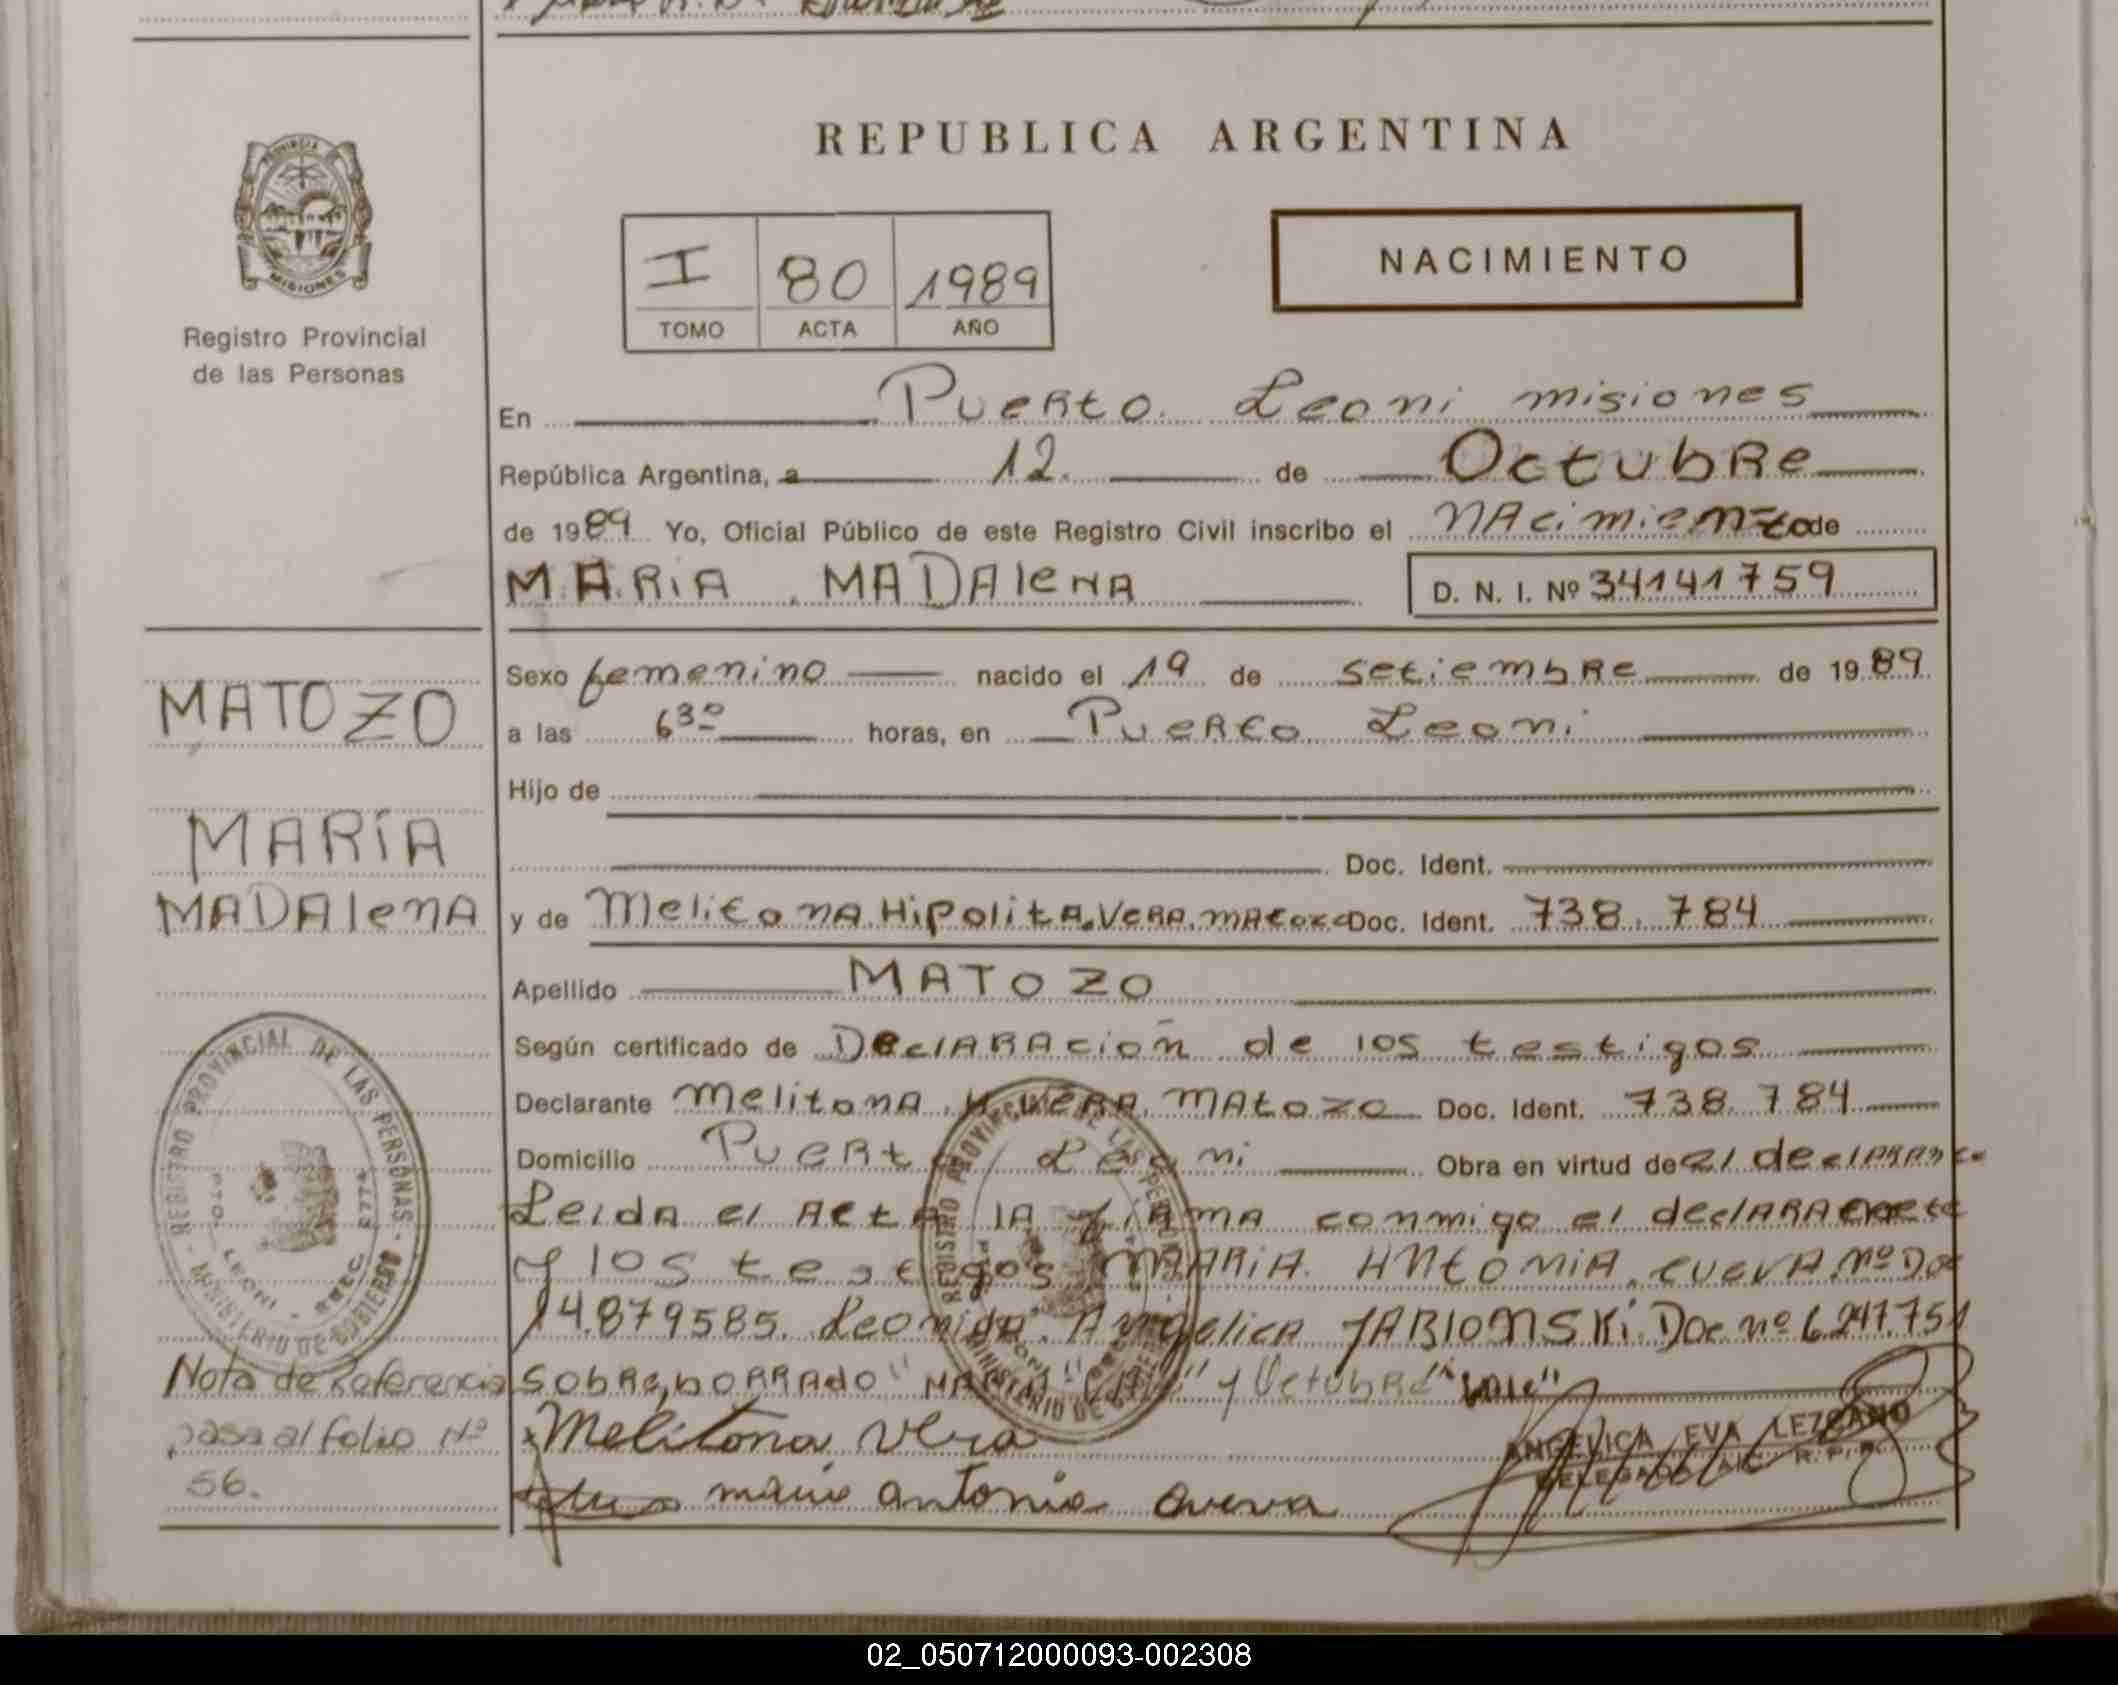 REPUBLICA ARGENTINA
PROVINCIA DE
MISIONES
Registro Provincial
de las Personas
I 80 1989
TOMO ACTA AÑO
NACIMIENTO
En Puerto Leoni misiones
República Argentina, a 12 de Octubre
de 1989 Yo, Oficial Público de este Registro Civil inscribo el nacimiento de
MARIA MADAlenA D. N. I. Nº 34141759
MATOZO
MARÍA
MADAlenA
Sexo femenino nacido el 19 de setiembre de 1989
a las 6 30 horas, en Puerto Leoni
Hijo de
Doc. Ident.
y de Melitona Hipolita Vera matozo Doc. Ident. 738.784
Apellido MATOZO
Según certificado de Declaración de los testigos
Declarante Melitona H. Vera Matozo Doc. Ident. 738.784
Domicilio Puerto Leoni Obra en virtud de el declarante
Leida el Acta la firma conmigo el declarante
y los testigos MARIA Antonia cueva nº Doc
14.879585. Leonida Angelica JABlonSKi. Doc nº 6.247.751
Sobre borrado "MARIA" y Octubre "vale"
Melitona Vera
maria antonia cueva
ANGELICA EVA LEZCANO
REGISTRO PROVINCIAL DE LAS PERSONAS
MINISTERIO DE GOBIERNO
PTO. LEONI - SECC. 2774
Nota de Referencia
pasa al folio Nº
56.
02_050712000093-002308